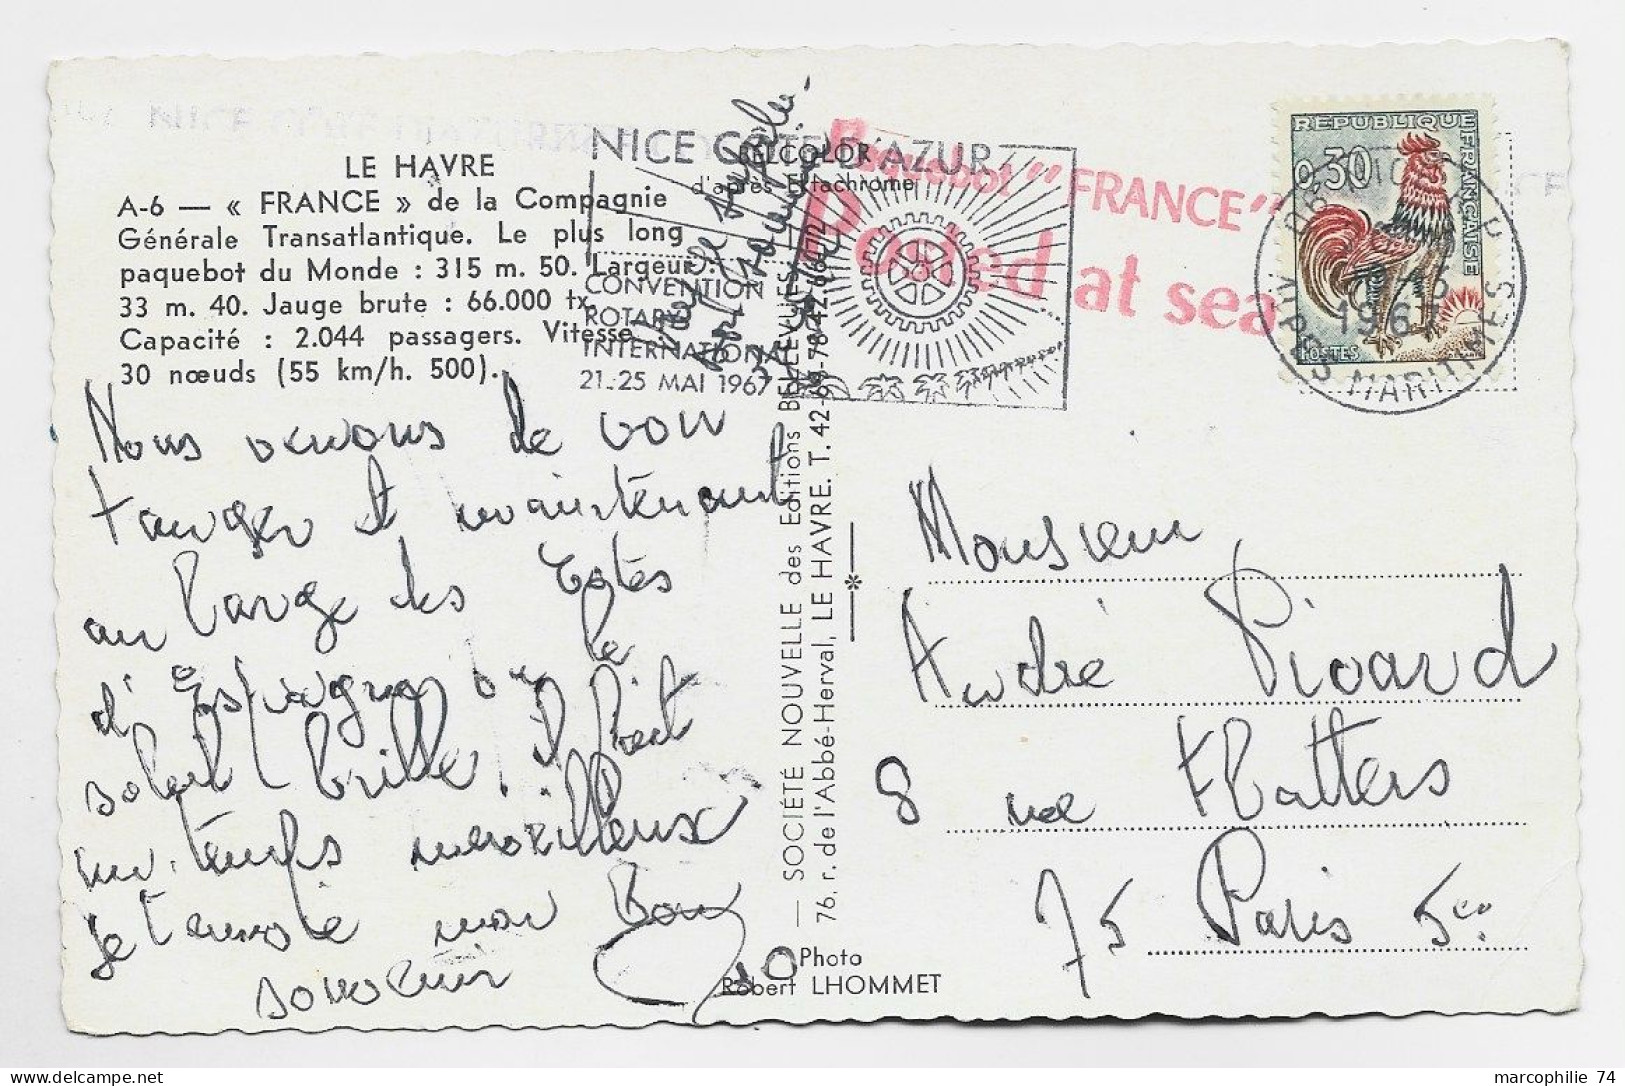 LE HAVRE
A-6 — « FRANCE » de la Compagnie
Générale Transatlantique. Le plus long
paquebot du Monde : 315 m. 50. Largeur :
33 m. 40. Jauge brute : 66.000 tx.
Capacité : 2.044 passagers. Vitesse
30 nœuds (55 km/h. 500).
NICE COTE D'AZUR
CONVENTION
ROTARY
INTERNATIONAL
21-25 MAI 1967
RELCOLOR
d'après Ektachrome
Paquebot "FRANCE"
Posted at sea
REPUBLIQUE FRANÇAISE
0,30
POSTES
1967
ALPES MARITIMES
Nous venons de voir
tanger et maintenant
au large des Cotes
d'Espagne ou le
soleil brille, il fait
un temps merveilleux
Je t'envoie mon Bon
souvenir
— SOCIÉTÉ NOUVELLE des Editions BELLEVUES
76, r. de l'Abbé-Herval, LE HAVRE. T. 42-69-78
Photo
Robert LHOMMET
Monsieur
André Picard
8 rue Flatters
75 Paris 5e
marcophilie 74